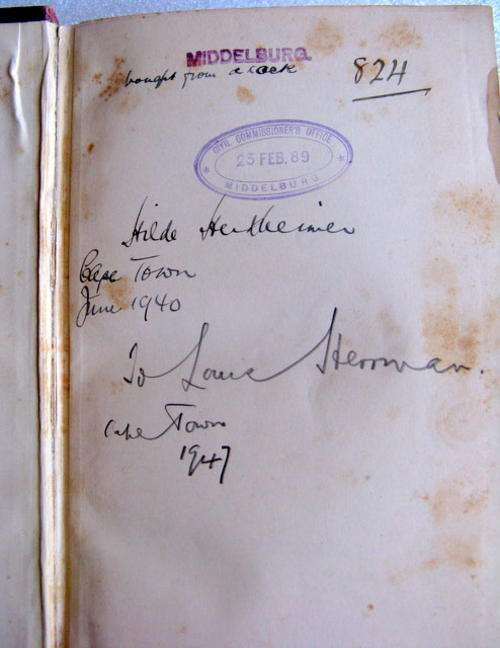 MIDDELBURG.
bought from
824
CIVIL COMMISSIONER'S OFFICE
23 FEB. 89
MIDDELBURG
Hilde
Cape Town
June 1940
To Louis Herrman.
Cape Town
1947